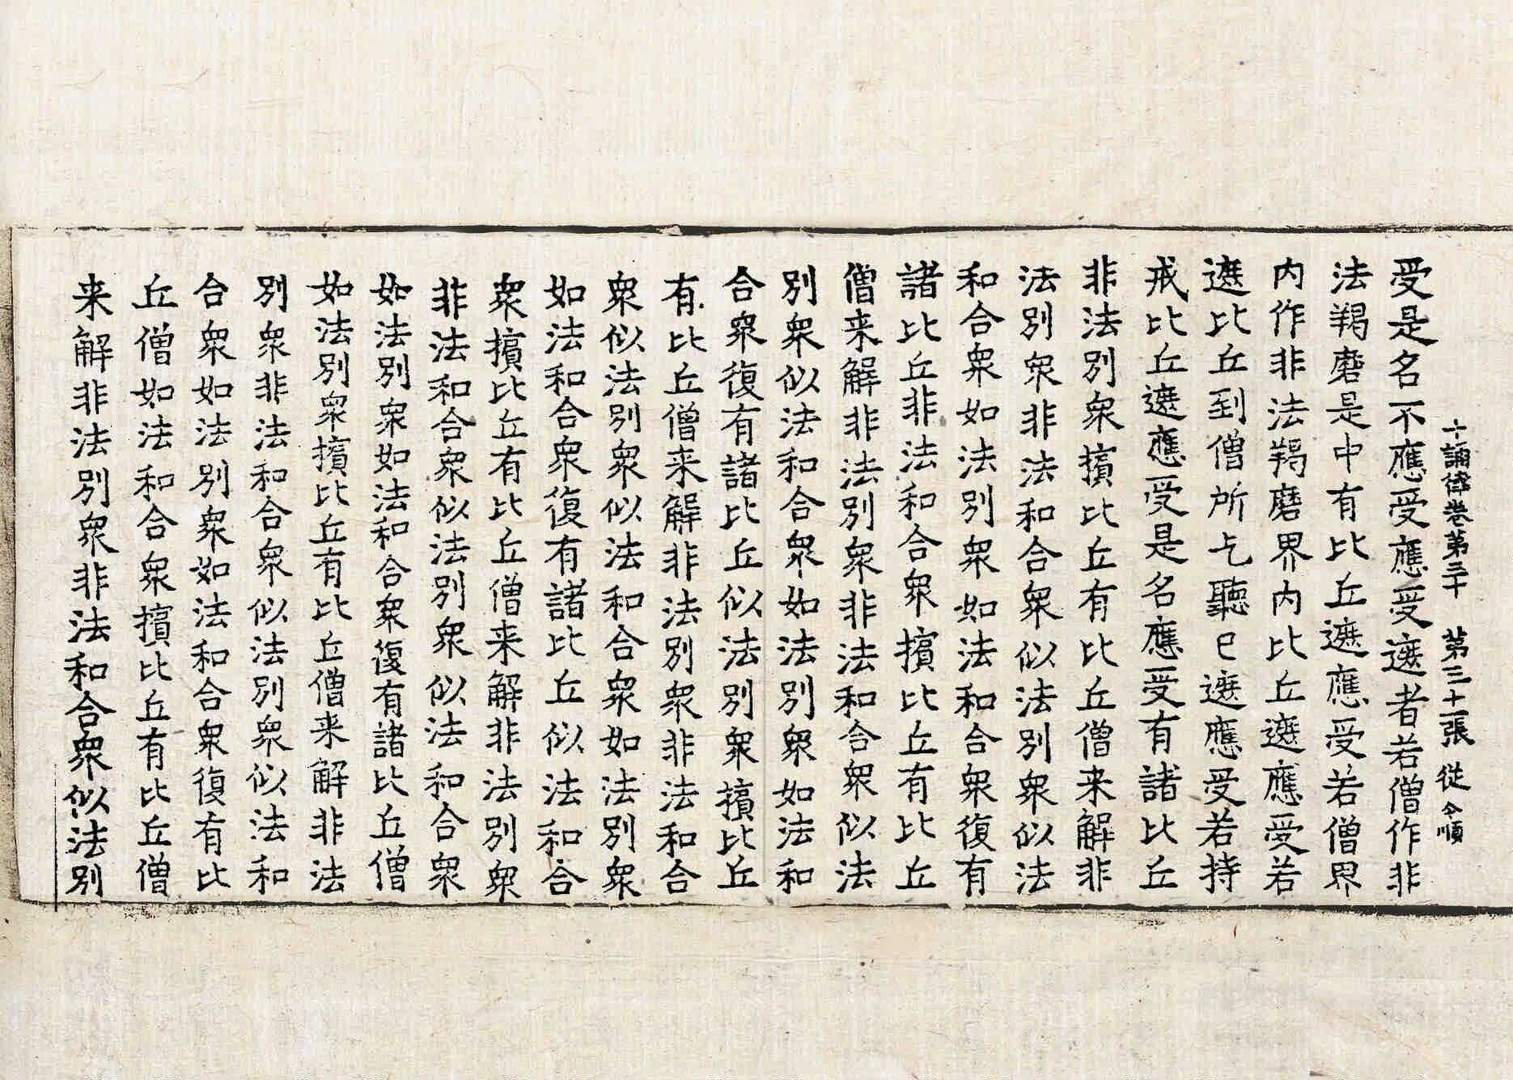 十誦律卷第三十　第三十一張　從　令順
受是名不應受應受遮者若僧作非
法羯磨是中有比丘遮應受若僧界
内作非法羯磨界内比丘遮應受若
遮比丘到僧所乞聽已遮應受若持
戒比丘遮應受是名應受有諸比丘
非法別衆擯比丘有比丘僧来解非
法別衆非法和合衆似法別衆似法
和合衆如法別衆如法和合衆復有
諸比丘非法和合衆擯比丘有比丘
僧来解非法別衆非法和合衆似法
別衆似法和合衆如法別衆如法和
合衆復有諸比丘似法別衆擯比丘
有比丘僧来解非法別衆非法和合
衆似法別衆似法和合衆如法別衆
如法和合衆復有諸比丘似法和合
衆擯比丘有比丘僧来解非法別衆
非法和合衆似法別衆似法和合衆
如法別衆如法和合衆復有諸比丘僧
如法別衆擯比丘有比丘僧来解非法
別衆非法和合衆似法別衆似法和
合衆如法別衆如法和合衆復有比
丘僧如法和合衆擯比丘有比丘僧
来解非法別衆非法和合衆似法別